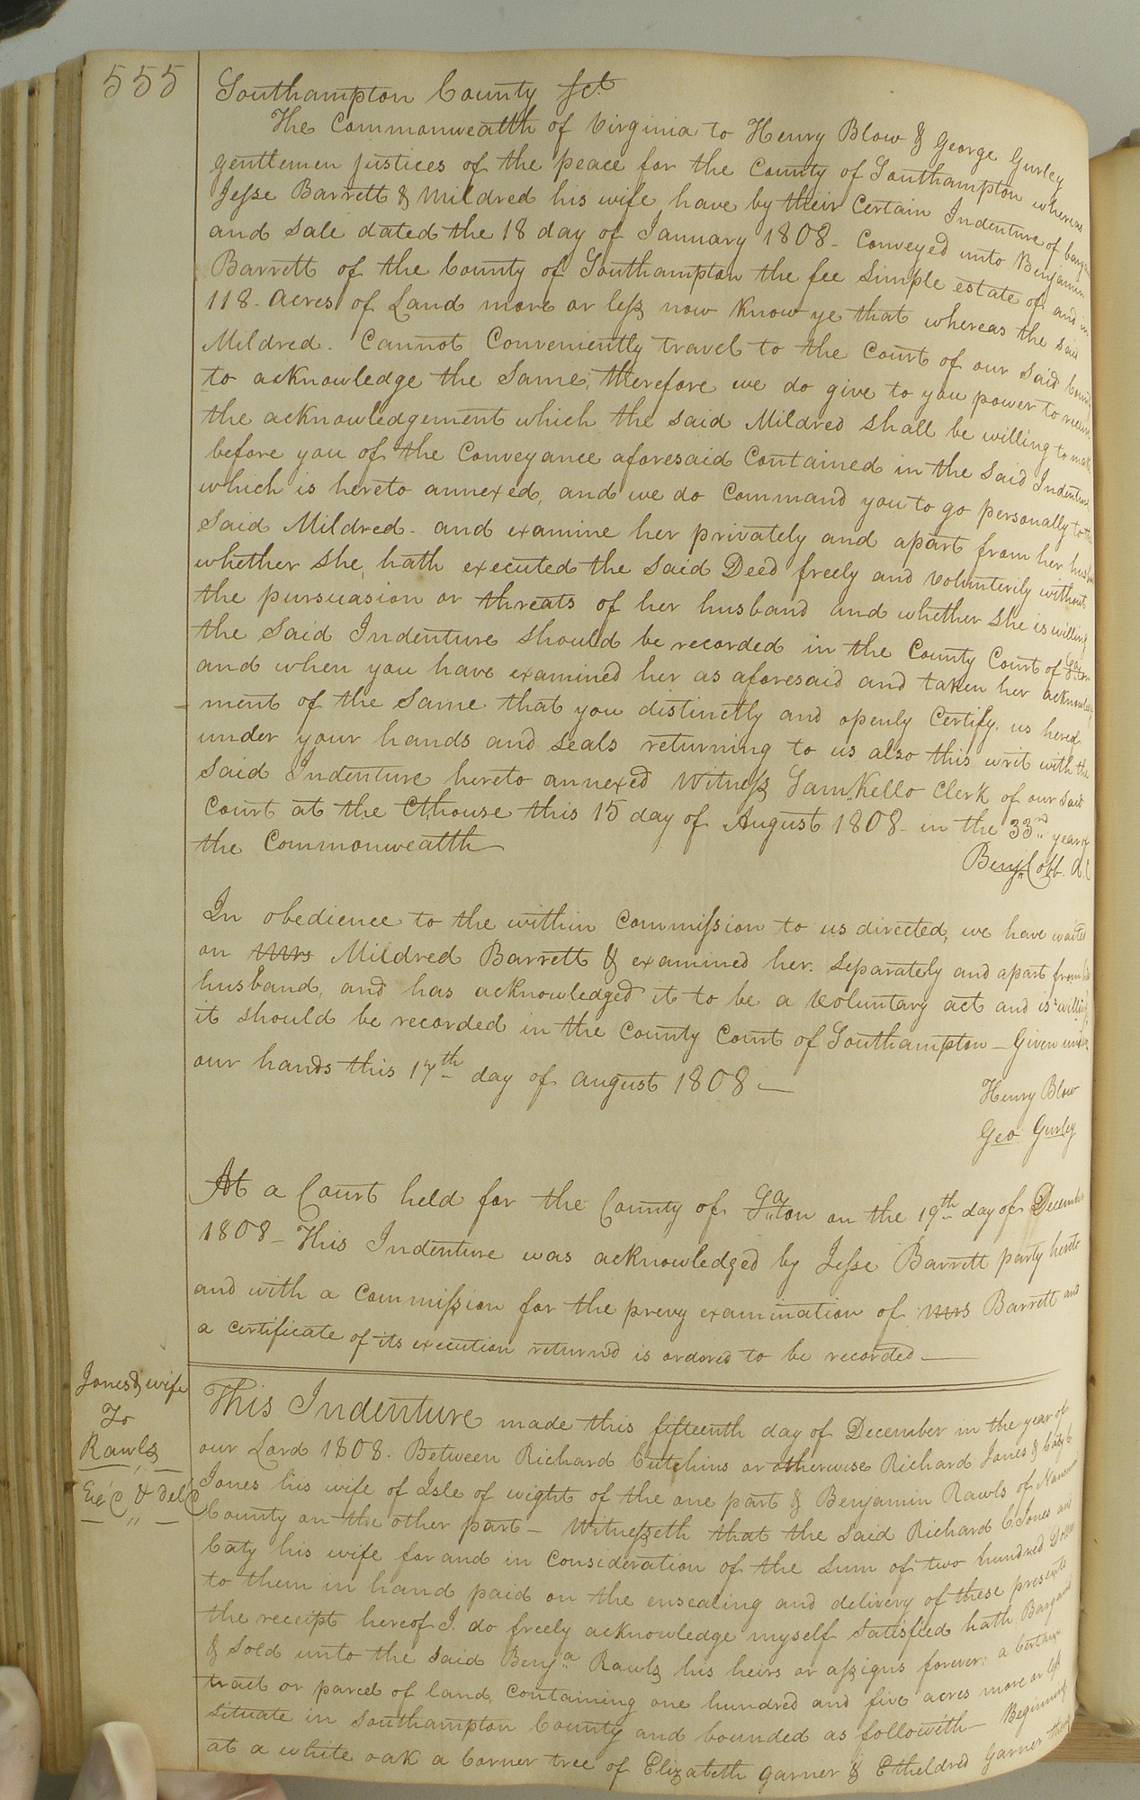 555
Southampton County Sct.
The Commonwealth of Virginia to Henry Blow & George Gurley
gentlemen justices of the peace for the County of Southampton whereas
Jesse Barrett & Mildred his wife have by their Certain Indenture of bargain
and Sale dated the 18 day of January 1808 - Conveyed unto Benjamin
Barrett of the County of Southampton the fee Simple estate of and in
118 - acres of Land more or less now Know ye that whereas the said
Mildred. Cannot Conveniently travel to the Court of our said County
to acknowledge the Same, therefore we do give to you power to receive
the acknowledgement which the said Mildred shall be willing to make
before you of the Conveyance aforesaid Contained in the said Indenture
which is hereto annexed, and we do Command you to go personally to the
Said Mildred - and examine her privately and apart from her husband
whether she hath executed the said Deed freely and volunterily without
the pursuasion or threats of her husband and whether she is willing
the Said Indenture should be recorded in the County Court of Soton
and when you have examined her as aforesaid and taken her acknowledg
ment of the Same that you distinctly and openly Certify us hereof
under your hands and seals returning to us also this writ with the
Said Indenture hereto annexed Witness Saml. Kello Clerk of our said
Court at the Cthouse this 15 day of August 1808 - in the 33rd year of
the Commonwealth
Benj. Cobb. d C
In obedience to the within Commission to us directed, we have waited
on Mrs Mildred Barrett & examined her. Separately and apart from her
husband, and has acknowledged it to be a voluntary act and is willing
it should be recorded in the County Court of Southampton - Given under
our hands this 17th day of August 1808 -
Henry Blow
Geo Gurley
At a Court held for the County of Soaton on the 19th day of December
1808 - This Indenture was acknowledged by Jesse Barrett party hereto
and with a Commission for the prevy examination of Mrs Barrett and
a certificate of its execution returnd is ordered to be recorded -
Jones & wife
To
Rawls
Exd & Deld
This Indenture made this fifteenth day of December in the year of
our Lord 1808. Between Richard Cutchins or otherwise Richard Jones & Caty
Jones his wife of Isle of wight of the one part & Benjamin Rawls of Nansemond
County on the other part - Witnesseth that the Said Richard C Jones and
Caty his wife for and in Consideration of the Sum of two hundred Dollars
to them in hand paid on the ensealing and delivery of these presents
the receipt hereof I do freely acknowledge myself Satisfied hath Bargained
& sold unto the said Benja Rawls his heirs or assigns forever: a Certain
tract or parcel of land, Containing one hundred and five acres more or less
Situate in Southampton County and bounded as followith - Beginning
at a white oak a Corner tree of Elizabeth Garner & Etheldred Garner thence